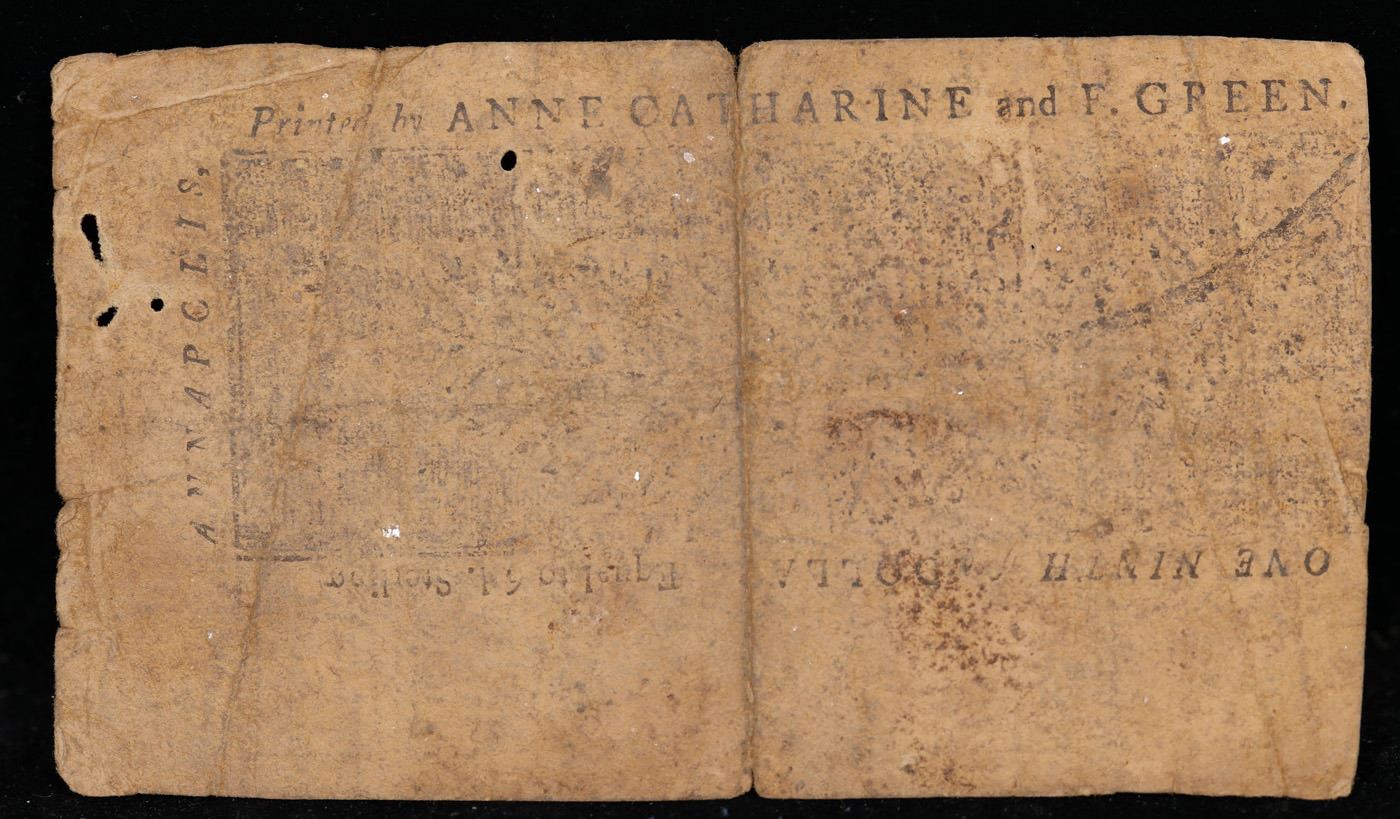 Printed by ANNE CATHARINE and F. GREEN.
ANNAPOLIS,
ONE NINTH of a DOLLA
Equal to 6d. Sterling